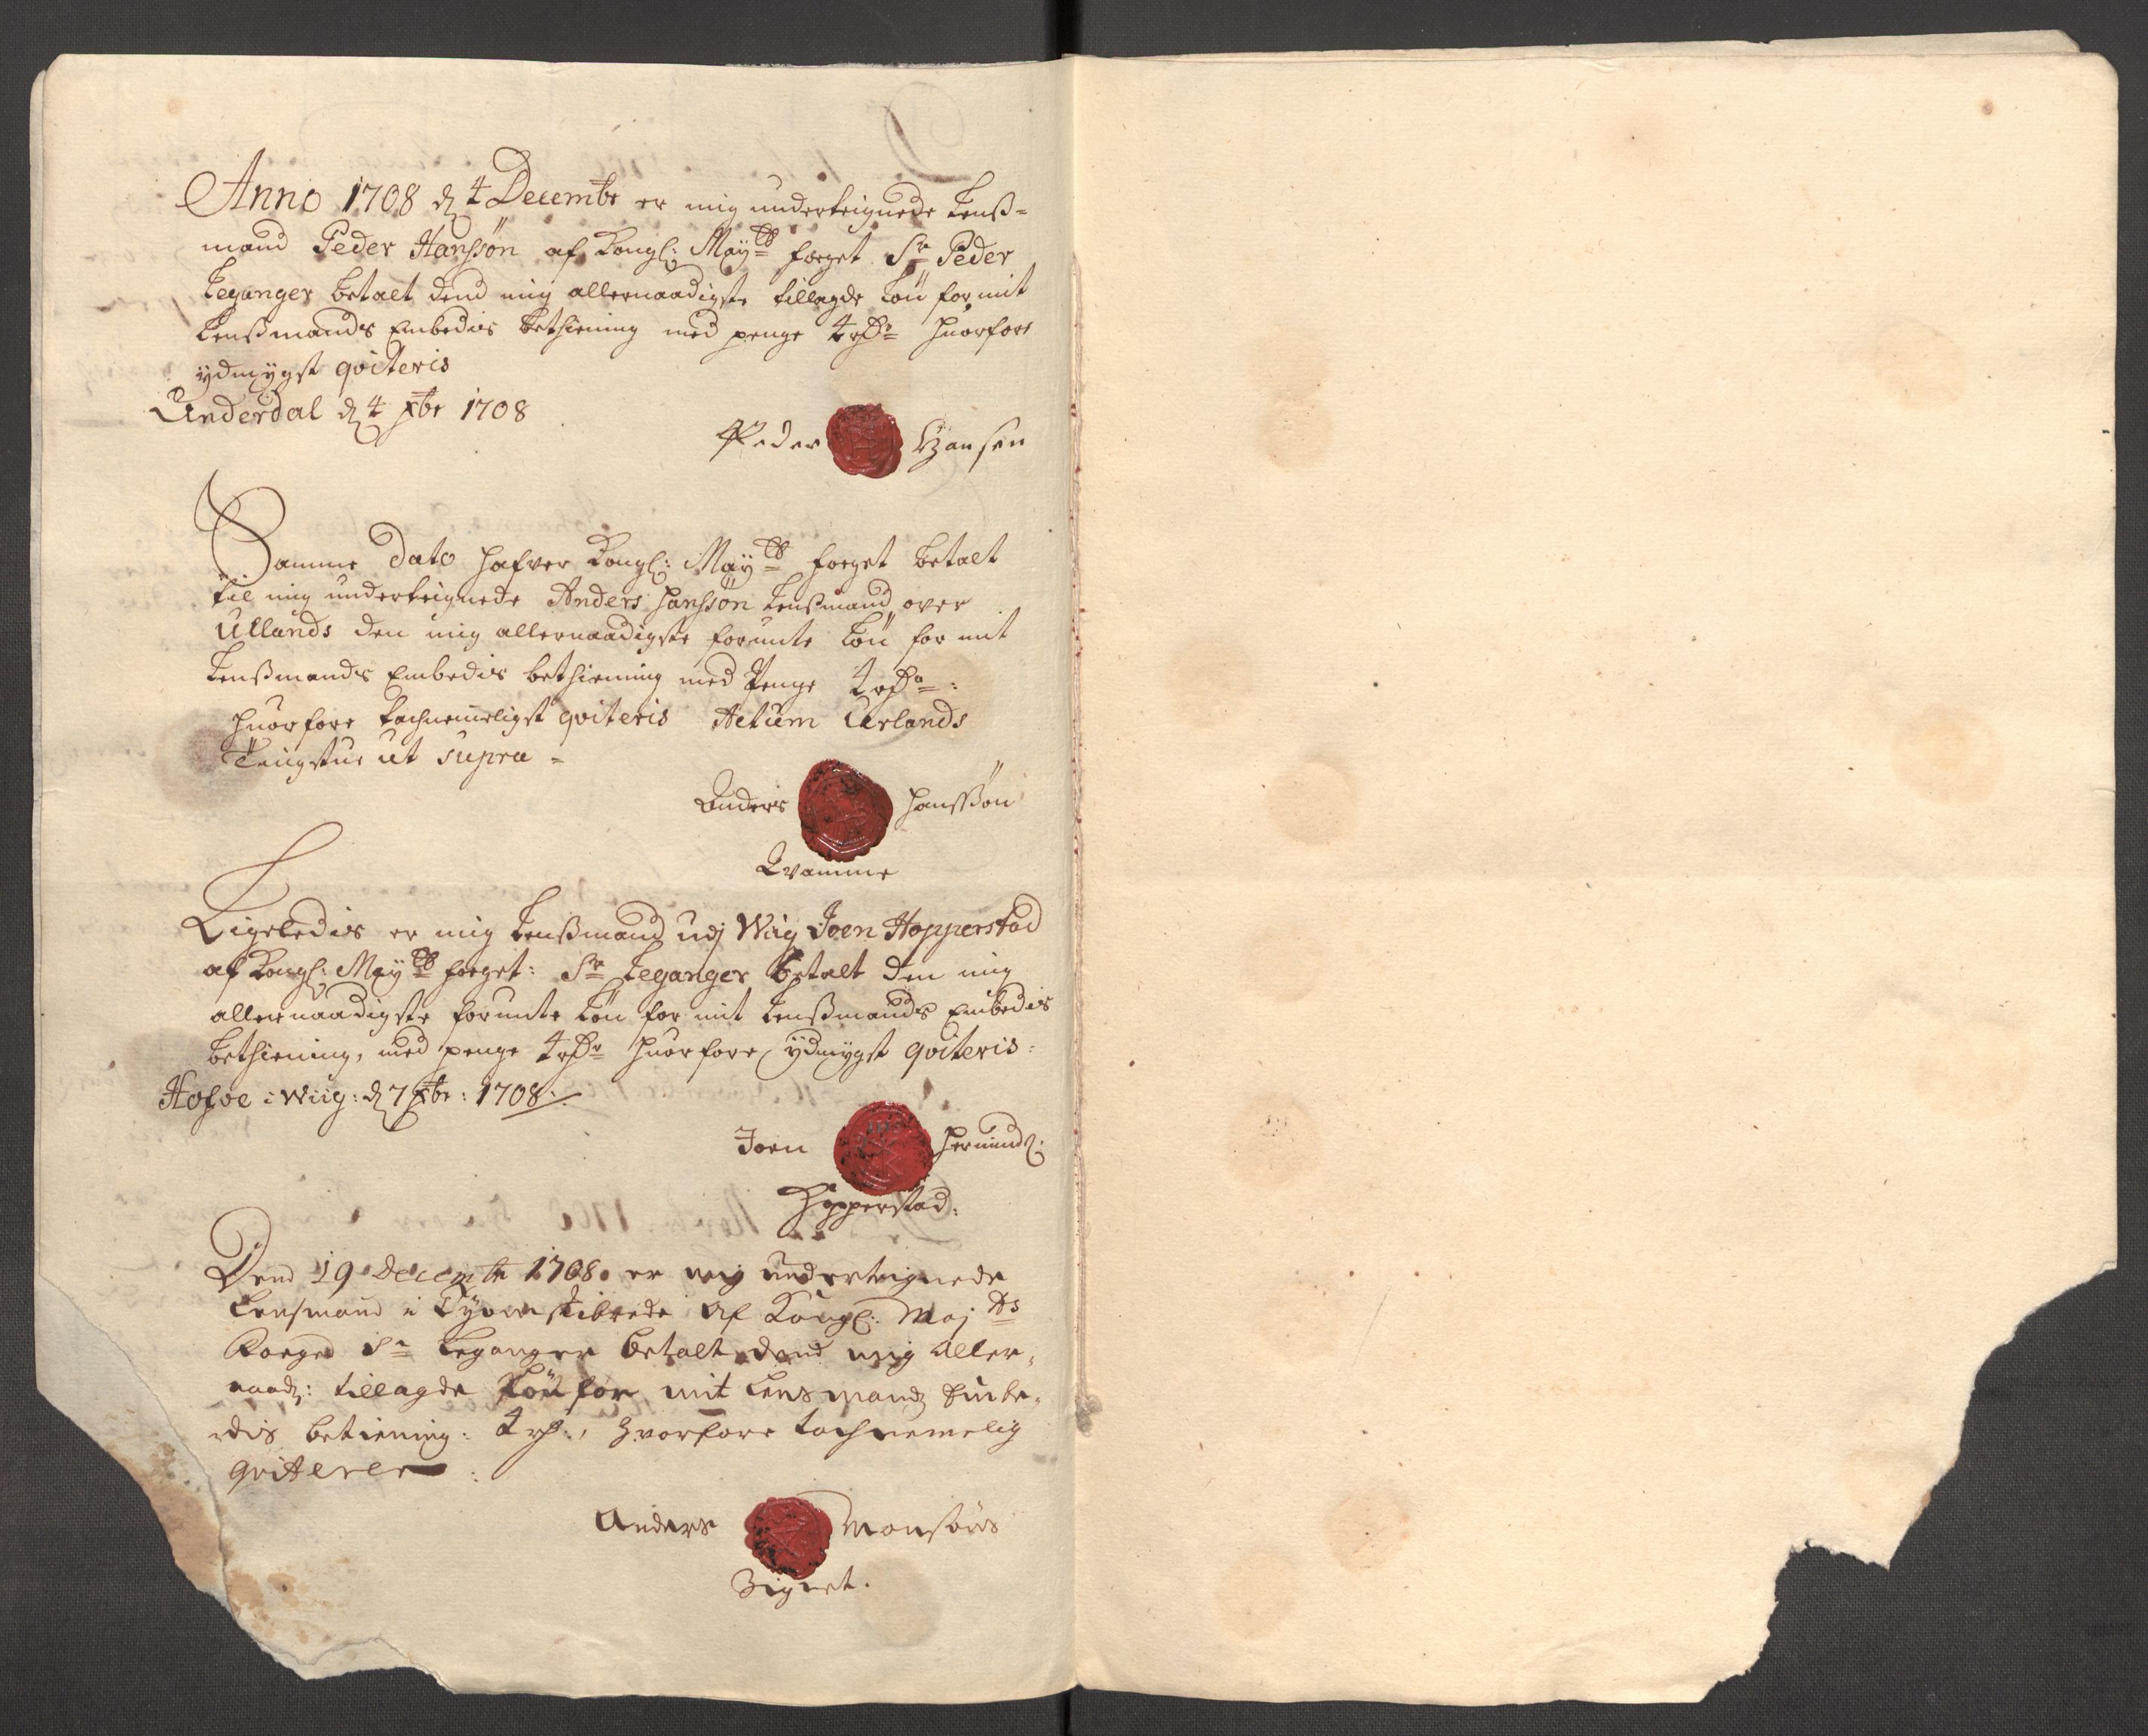 Anno 1708 d 4 Decembr er mig underteignede Lenß-
mand Peder Hanssøn af Kongl: Mayts foeget Sr Peder
Leganger betalt dend mig allernaadigste tillagde Løn for mit
Lenßmands Embedis bethiening med penge 4 rdr huorfore
ydmygst qviteris
Underdal d 4 xbr 1708
Peder Hansen
Samme Dato hafver Kongl: Mayts foeget betalt
til mig underteignede Anders Hanssøn Lenßmand over
Urlands den mig allernaadigste forunte Løn for mit
Lenßmands Embedis bethiening med Penge 4 rdr:
huorfore tachnemeligst qviteris Actum Urlands
Tingstue ut supra -
Anders Hanssøn
Kvamme
Ligeledis er mig Lenßmand udj Wiig Joen Hopperstad
af Kongl: Mayts foeget: Sr Leganger betalt den mig
allernaadigste forunte Løn for mit Lenßmands Embedis
bethiening, med penge 4 rdr huorfore ydmygst qviteris:
Hofve i Wiig: d 7 xbr: 1708
Joen Hermunds:
Hopperstad:
Dend 19 Decembr 1708. er mig underteignede
Lensmand i skibrede Af Kongl: Majts
Foeged Sr Leganger betalt dend mig Aller-
naad: tillagde Løn for mit Lensmands Embe-
dis betiening: 4 rd:, hvorfore tachnemelig
qviterer:
Anders Monsøns
Zignet.